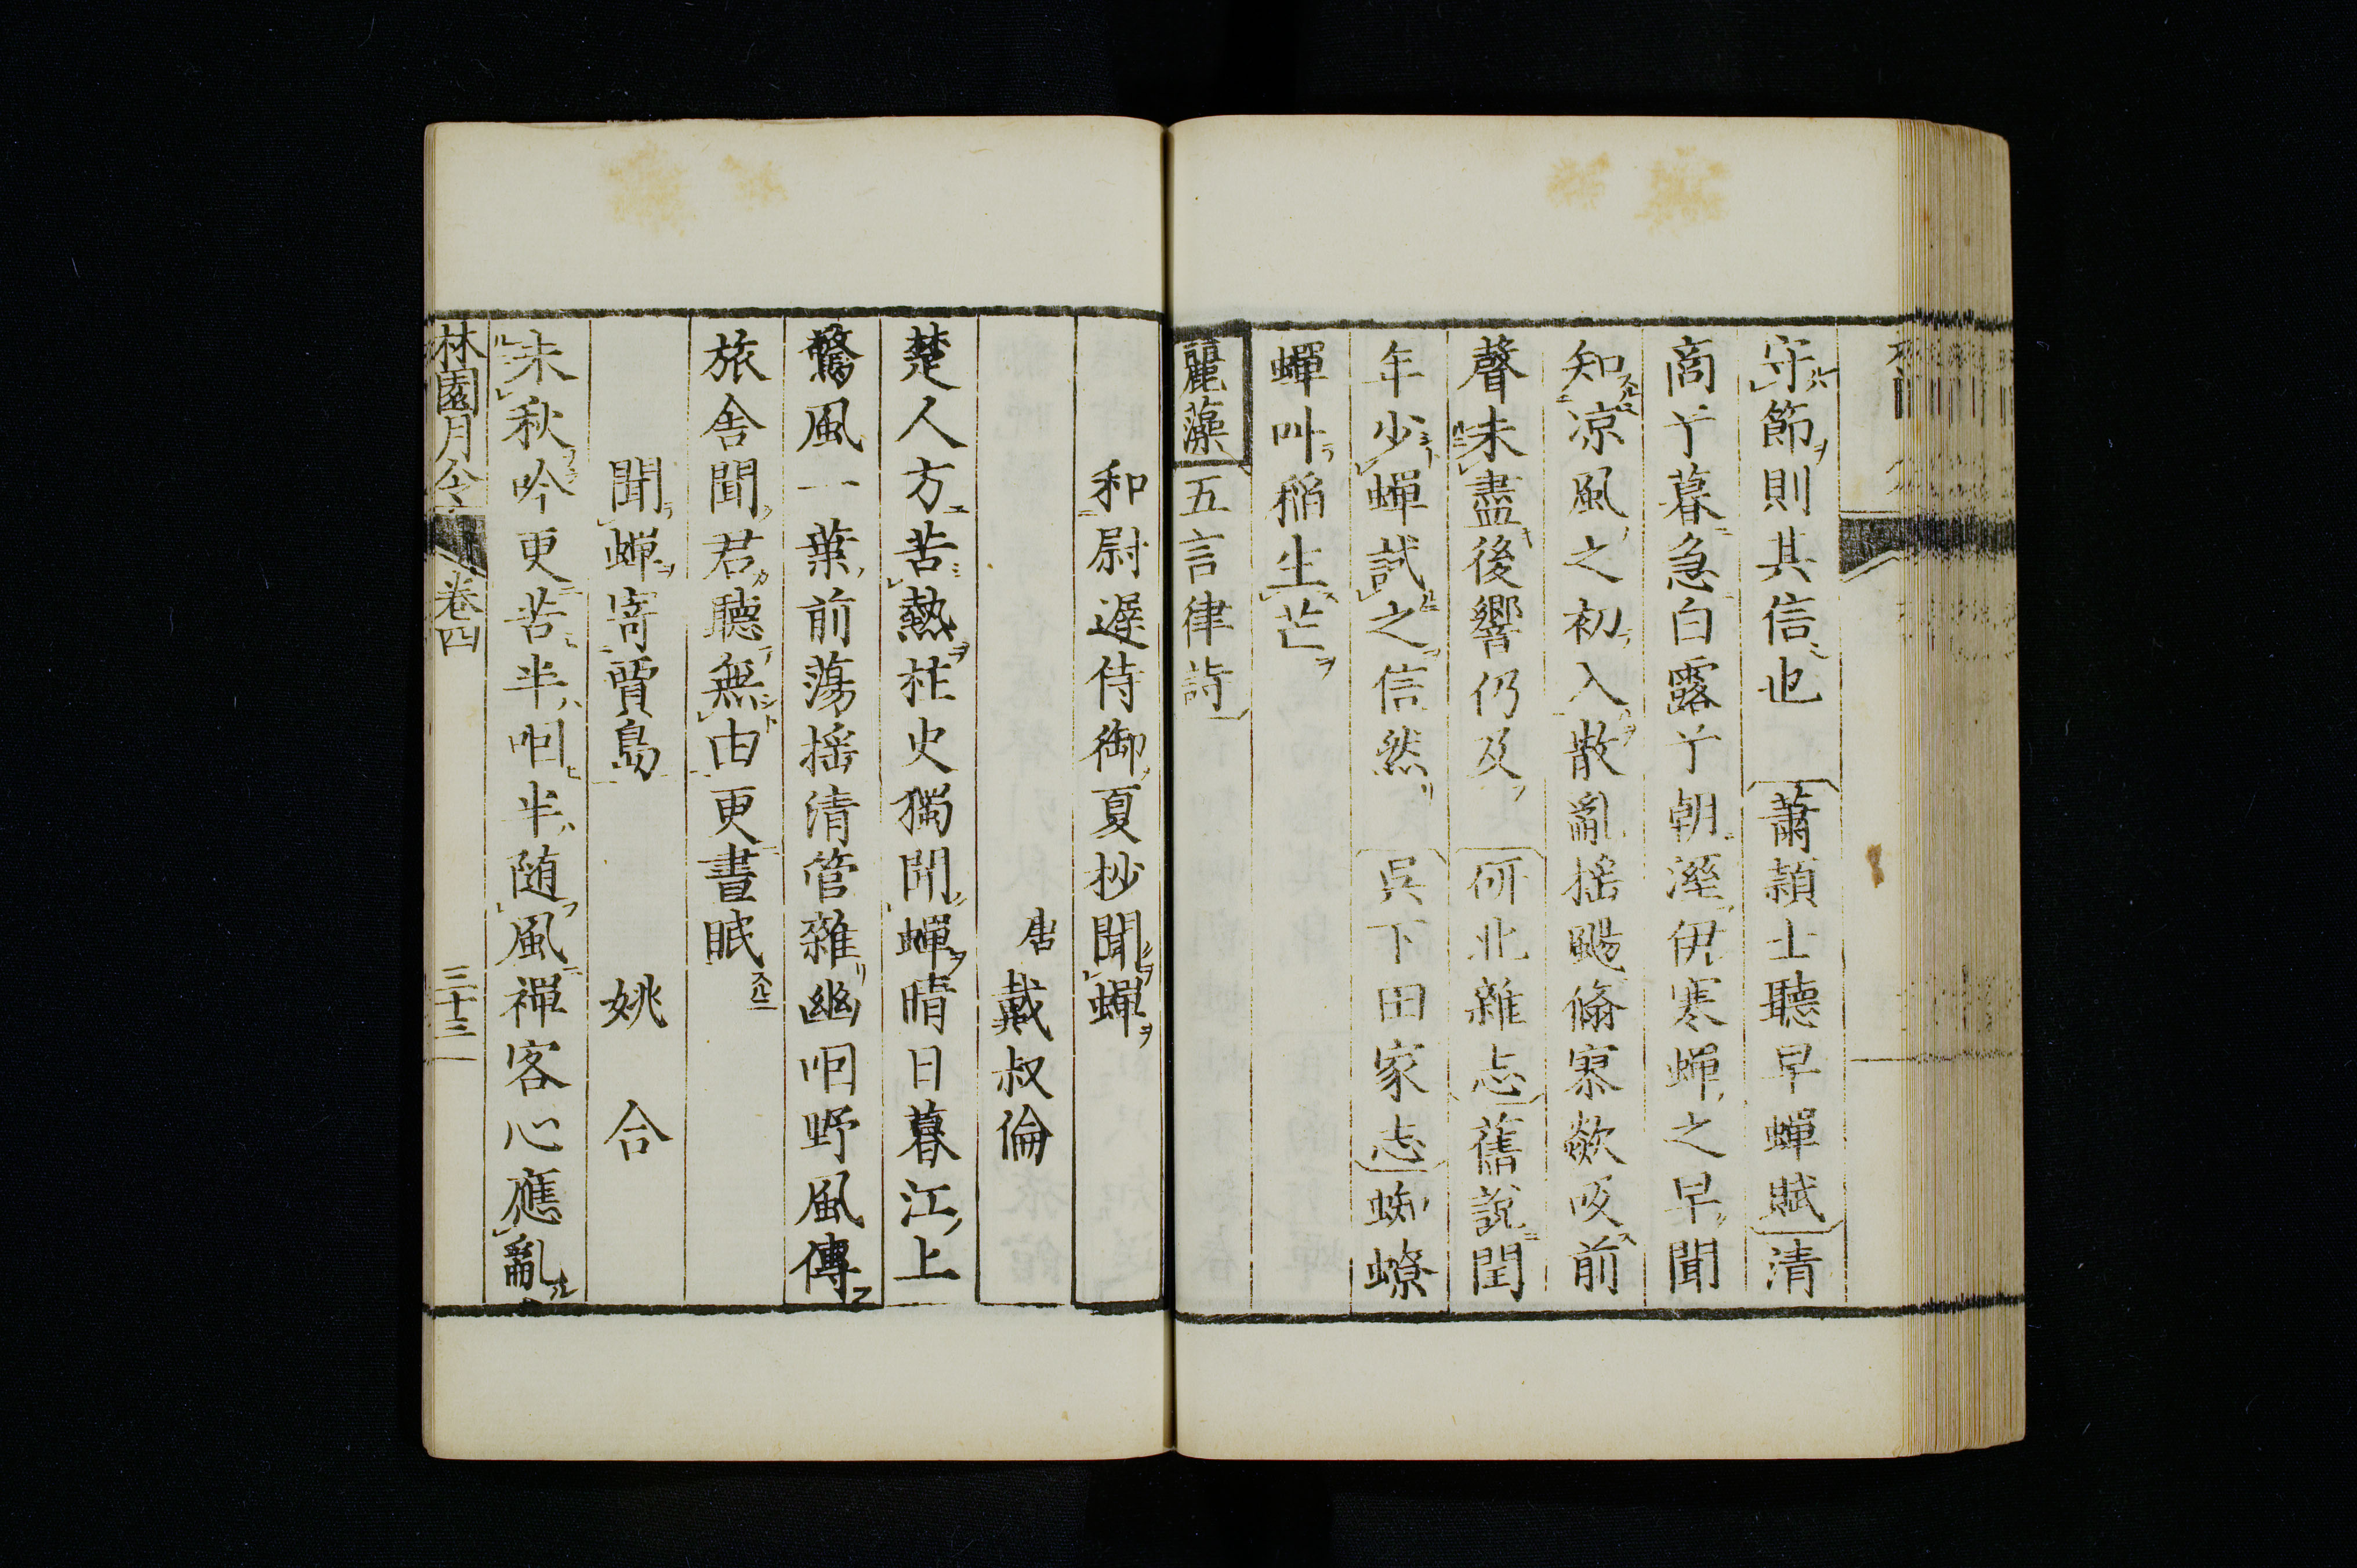 守節則其信也蕭頴士聽早蟬賦清
商兮暮急白露兮朝溼伊寒蟬之早聞
知凉風之初入散亂揺颺儵寥欻吸前
聲未盡後響仍及何北雜志舊說閏
年少蟬試之信然呉下田家志蜘蟟
蟬叫稲生芒
麗藻五言律詩
和尉遲侍御夏抄聞蟬
唐戴叔倫
楚人方苦熱柱史獨聞蟬晴日暮江上
驚風一葉前蕩揺清管雜幽咽野風傳
旅舎聞君聽無由更晝眠
聞蟬寄賈島姚合
未秋吟更苦半咽半随風禪客心應亂
林園月令卷四三十三